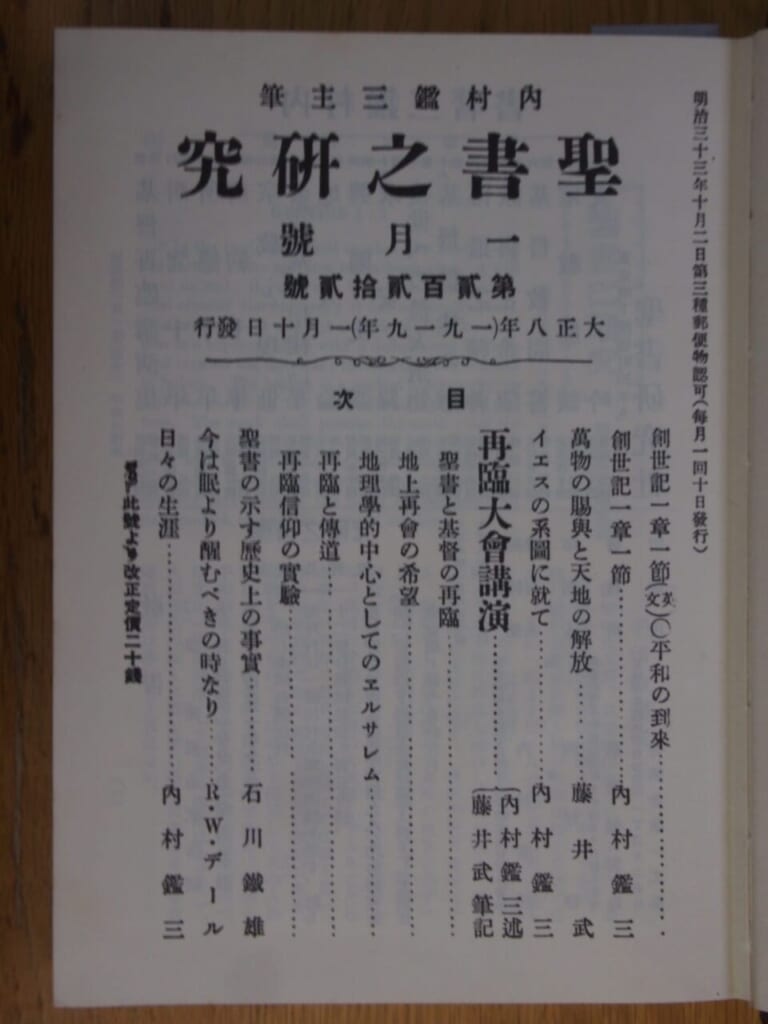 明治三十三年十月二日第三種郵便物認可(毎月一回十日發行)
内村鑑三主筆
聖書之硏究
一月號
第貳百貳拾貳號
大正八年(一九一九年)一月十日發行
目次
創世記一章一節(英文)○平和の到來
創世記一章一節 内村鑑三
萬物の賜與と天地の解放 藤井武
イエスの系圖に就て 内村鑑三
再臨大會講演 内村鑑三述 藤井武筆記
聖書と基督の再臨
地上再會の希望
地理學的中心としてのエルサレム
再臨と傳道
再臨信仰の實驗
聖書の示す歷史上の事實 石川鐵雄
今は眠より醒むべきの時なり R・W・デール
日々の生涯 内村鑑三
此號より改正定價二十錢